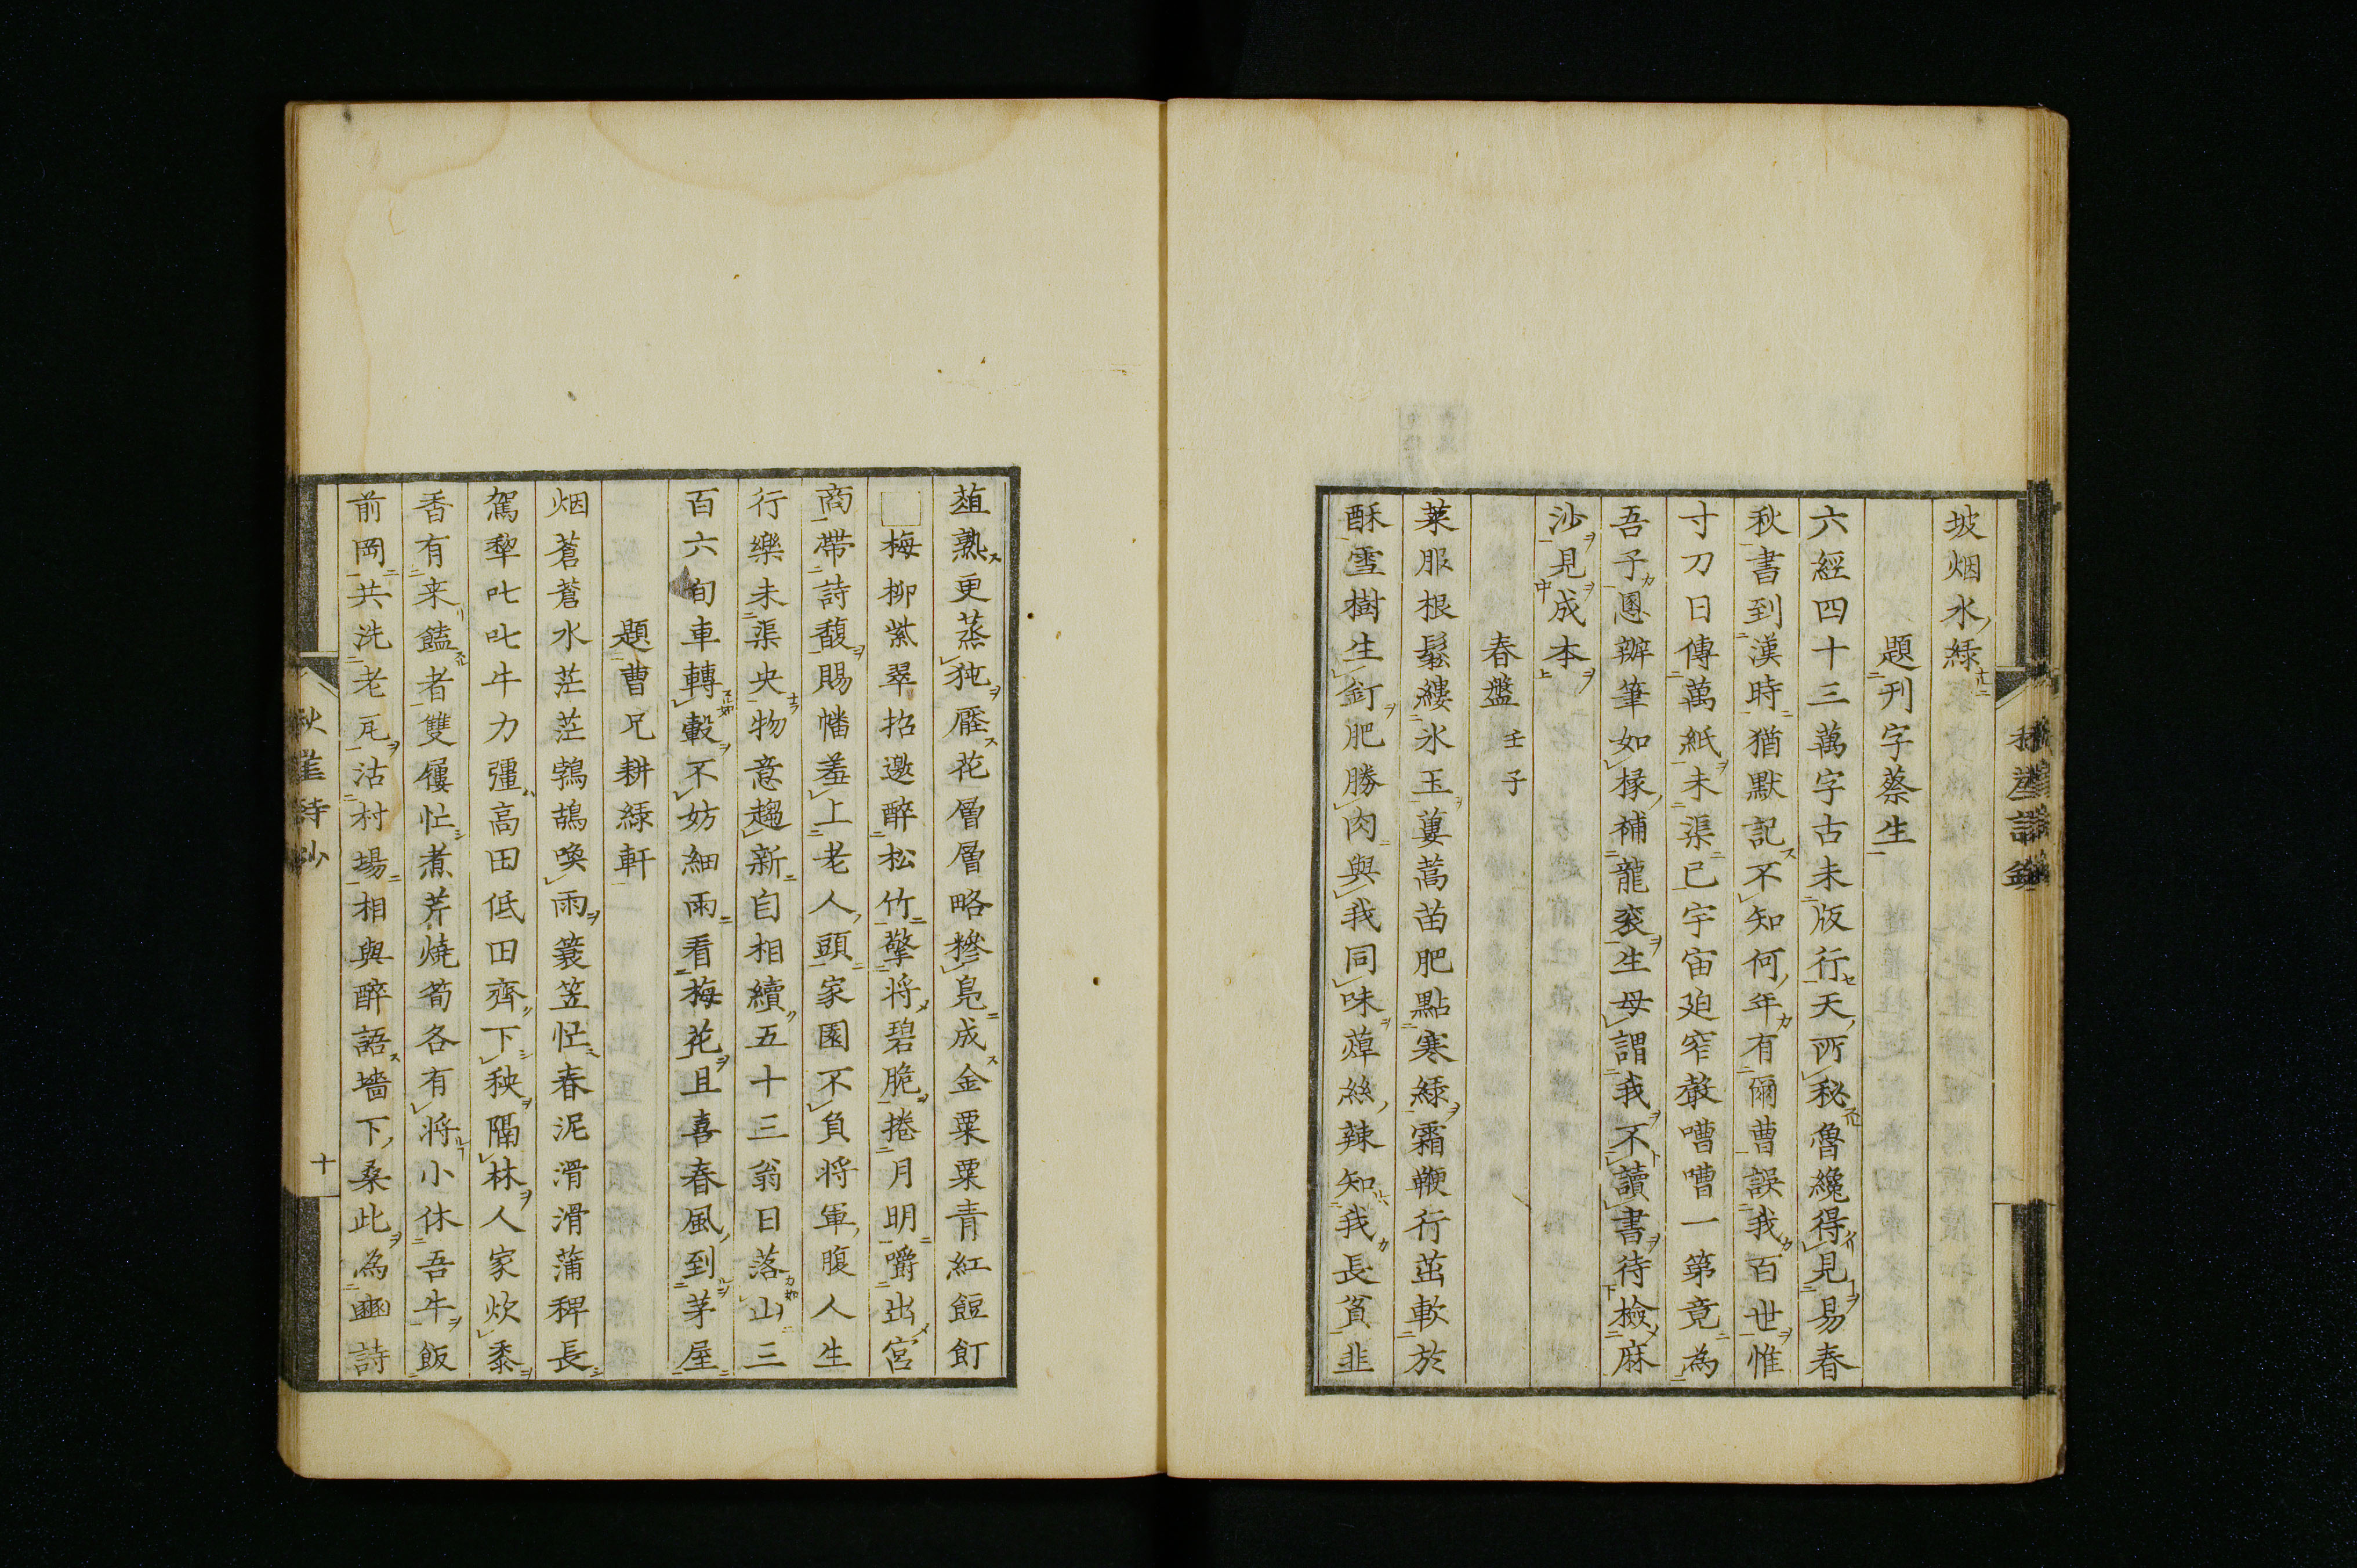 坡烟水綠
題刊字蔡生
六經四十三萬字古未版行天所秘魯纔得見易春
秋書到漢時猶默記不知何年有爾曹誤我百世惟
寸刀日傳萬紙未渠已宇宙迫窄聲嘈嘈一第竟為
吾子恩辦筆如椽補龍袞生母謂我不讀書待檢麻
沙見成本
春盤 壬子
萊服根鬆縷氷玉蔞蒿苗肥點寒綠霜鞭行茁軟於
酥雪樹生釘肥勝肉與我同味蓴絲辣知我長貧韭
葅熟更蒸㹠壓花層層略糝鳬成金粟粟青紅飣
□梅柳紫翠招邀醉松竹擎將碧脆捲月明嚼出宮
商帶詩馥賜幡羞上老人頭家園不負將軍腹人生
行樂未渠央物意趨新自相續五十三翁日落山三
百六旬車轉轂不妨細雨看梅花且喜春風到茅屋
題曹兄耕綠軒
烟蒼蒼水茫茫鵓鴣喚雨蓑笠忙春泥滑滑蒲稗長
駕犂叱叱牛力彊高田低田齊下秧隔林人家炊黍
香有来饁者雙屨忙煮芹燒筍各有將小休吾牛飯
前岡共洗老瓦沽村場相與醉語墻下桑此為豳詩
秋崖詩鈔
秋崖詩鈔
十